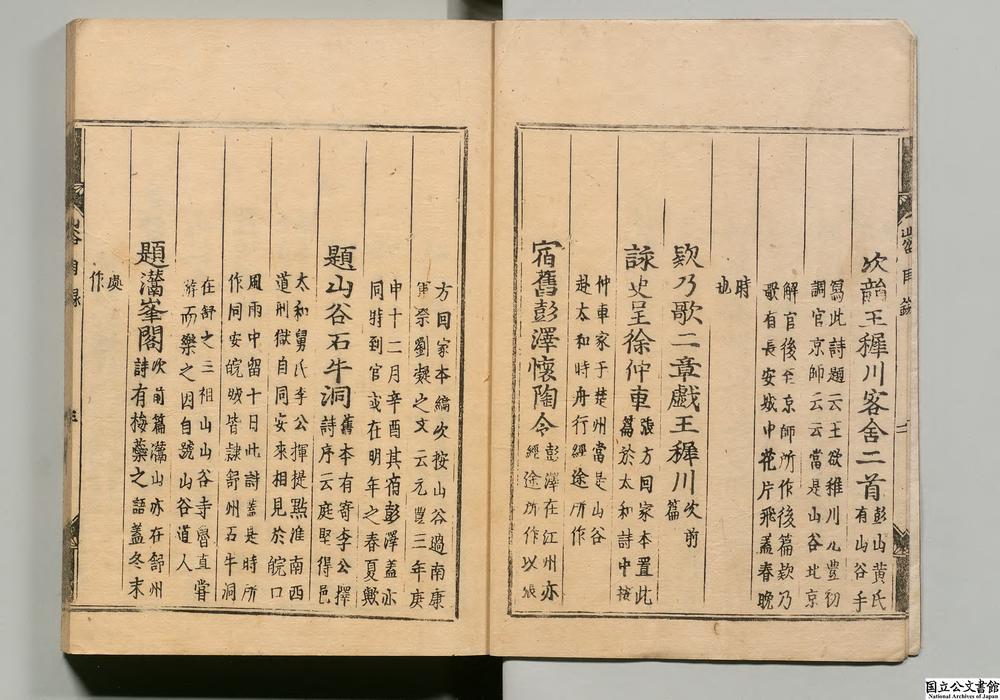 次韻王穉川客舍二首 彭山黃氏
有山谷手
寫此詩題云王欲稚川元豊初
調官京師云云當是山谷北京
解官後至京師所作後篇欵乃
歌有長安城中花片飛蓋春晚
時
也
欵乃歌二章戲王穉川 次前
篇
詠史呈徐仲車 張方回家本置此
篇於太和詩中按
仲車家于楚州當是山谷
赴太和時舟行經途所作
宿舊彭澤懷陶令 彭澤在江州亦
經途所作以張
方回家本編次按山谷過南康
軍祭劉凝之文云元豊三年庚
申十二月辛酉其宿彭澤蓋亦
同時到官或在明年之春夏歟
題山谷石牛洞 舊本有寄李公擇
詩序云庭堅得邑
太和舅氏李公擇提點淮南西
道刑獄自同安來相見於皖口
風雨中留十日此詩蓋是時所
作同安皖城皆隷舒州石牛洞
在舒之三祖山山谷寺魯直嘗
游而樂之因自號山谷道人
題灊峯閣 次前篇灊山亦在舒州
詩有梅蘂之語蓋冬末
歲
作
山谷目錄
二
山谷目錄
三
国立公文書館
National Archives of Japan